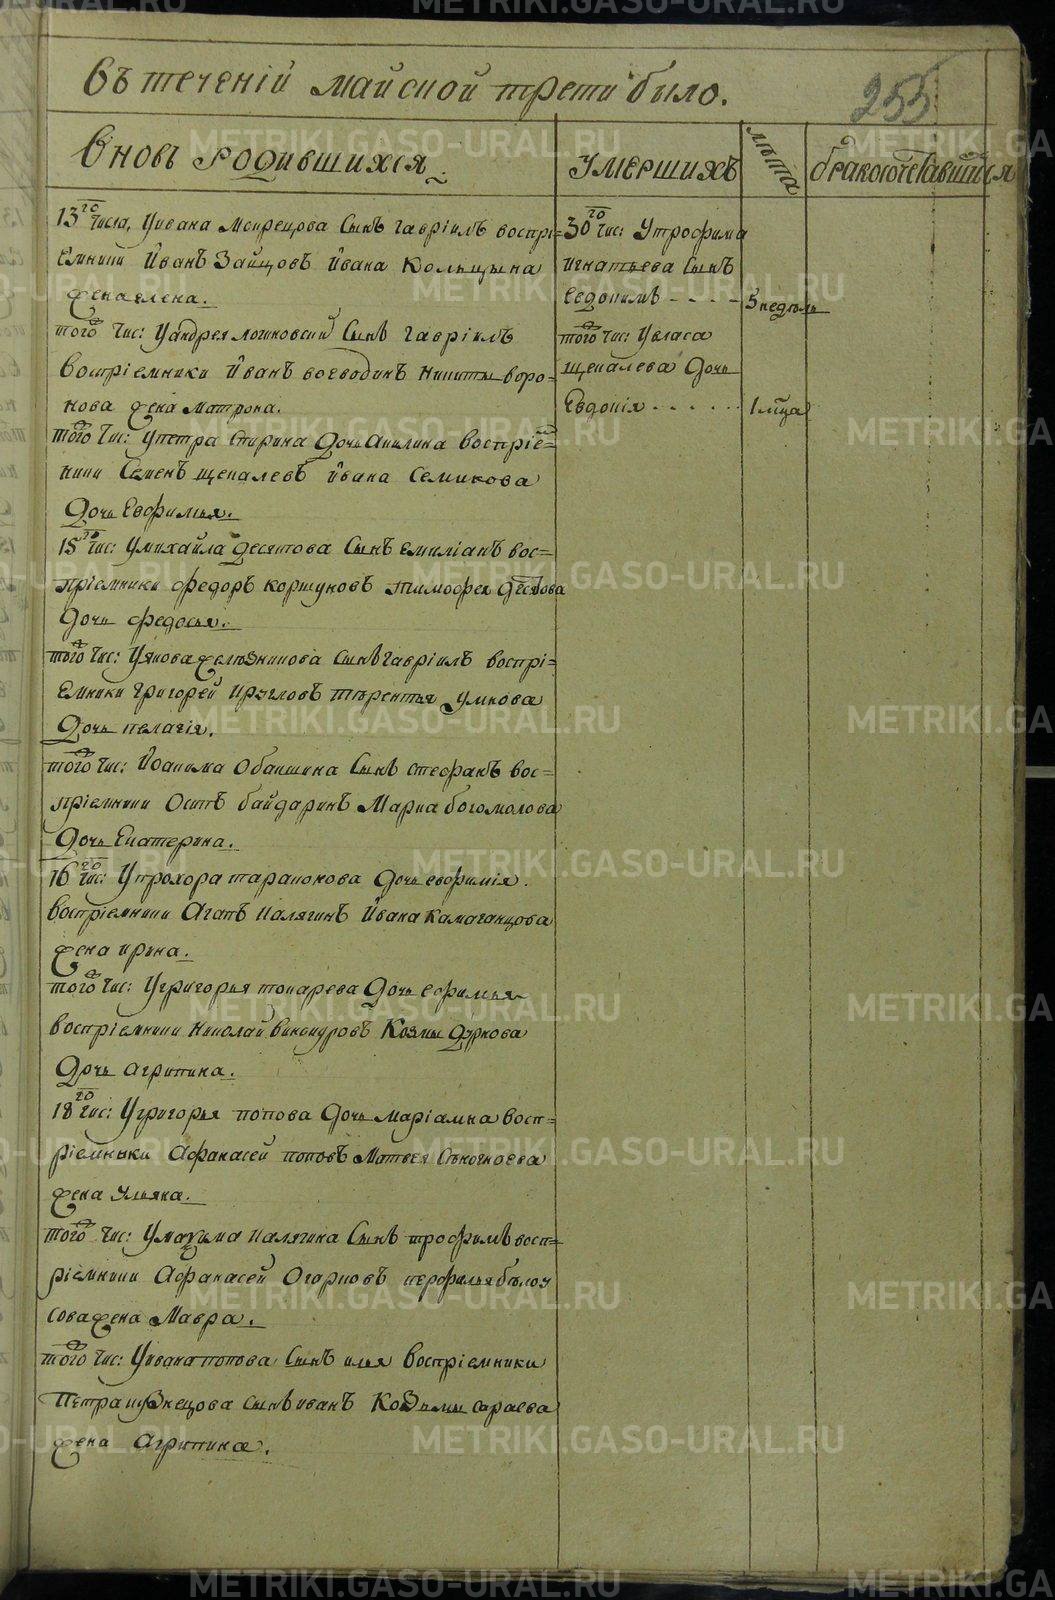 въ теченій майской трети было.
255
вновь родившихся
умершихъ
лѣта
бракосочетавшихся
13го числа, Уивана Сынъ гавріилъ воспрі=
емники йванъ Зайцовъ йвана Кольцына
жена елена.
того чис: Уандрея Сынъ гавріилъ
воспріемники йванъ воеводинъ никиты воро=
нова жена матрона.
того чис: упетра спирина дочь акилина воспріе=
ники Семенъ щепалевъ йвана Семикова
дочь Евфимья.
15го чис: Умихайла десятова Сынъ емиліанъ вос=
пріемники федоръ коршуновъ тимофея десятова
дочь федосья.
того чис: Уякова железникова сынъ гавріилъ воспрі=
емники григорей круглов терентья умнова
дочь пелагія.
того чис: Йоакима Обакшина Сынъ стефанъ вос=
пріемники Осипъ байдаринъ Марка богомолова
дочь Екатерина.
16го чис: Упрохора таранокова дочь евфимія.
воспріемники Агапъ калягинъ йвана Камаганцова
жена ирина.
того чис: Угригорья токарева дочь ефимья
воспріемники николай Козмы дуркова
дочь агрипина.
18го чис: Угригорья попова дочь маріамна восп=
ріемники Афанасей поповъ матвея
жена ульяна.
того чис: Умаxима калягина Сынъ трофимъ восп=
ріемники Афанасей Огарковъ перфилья белоу
сова жена Мавра.
того чис: Уивана попова Сынъ илья воспріемники
петра кузнецова сынъ иванъ Козьмы сараева
жена Агрипина.
30го чис: Утрофима
игнатьева Сынъ
Евдокимъ - - - - 5 недѣль
того чис: Увласа
щепалева дочь
Евдокія . . . . . . 1 мца